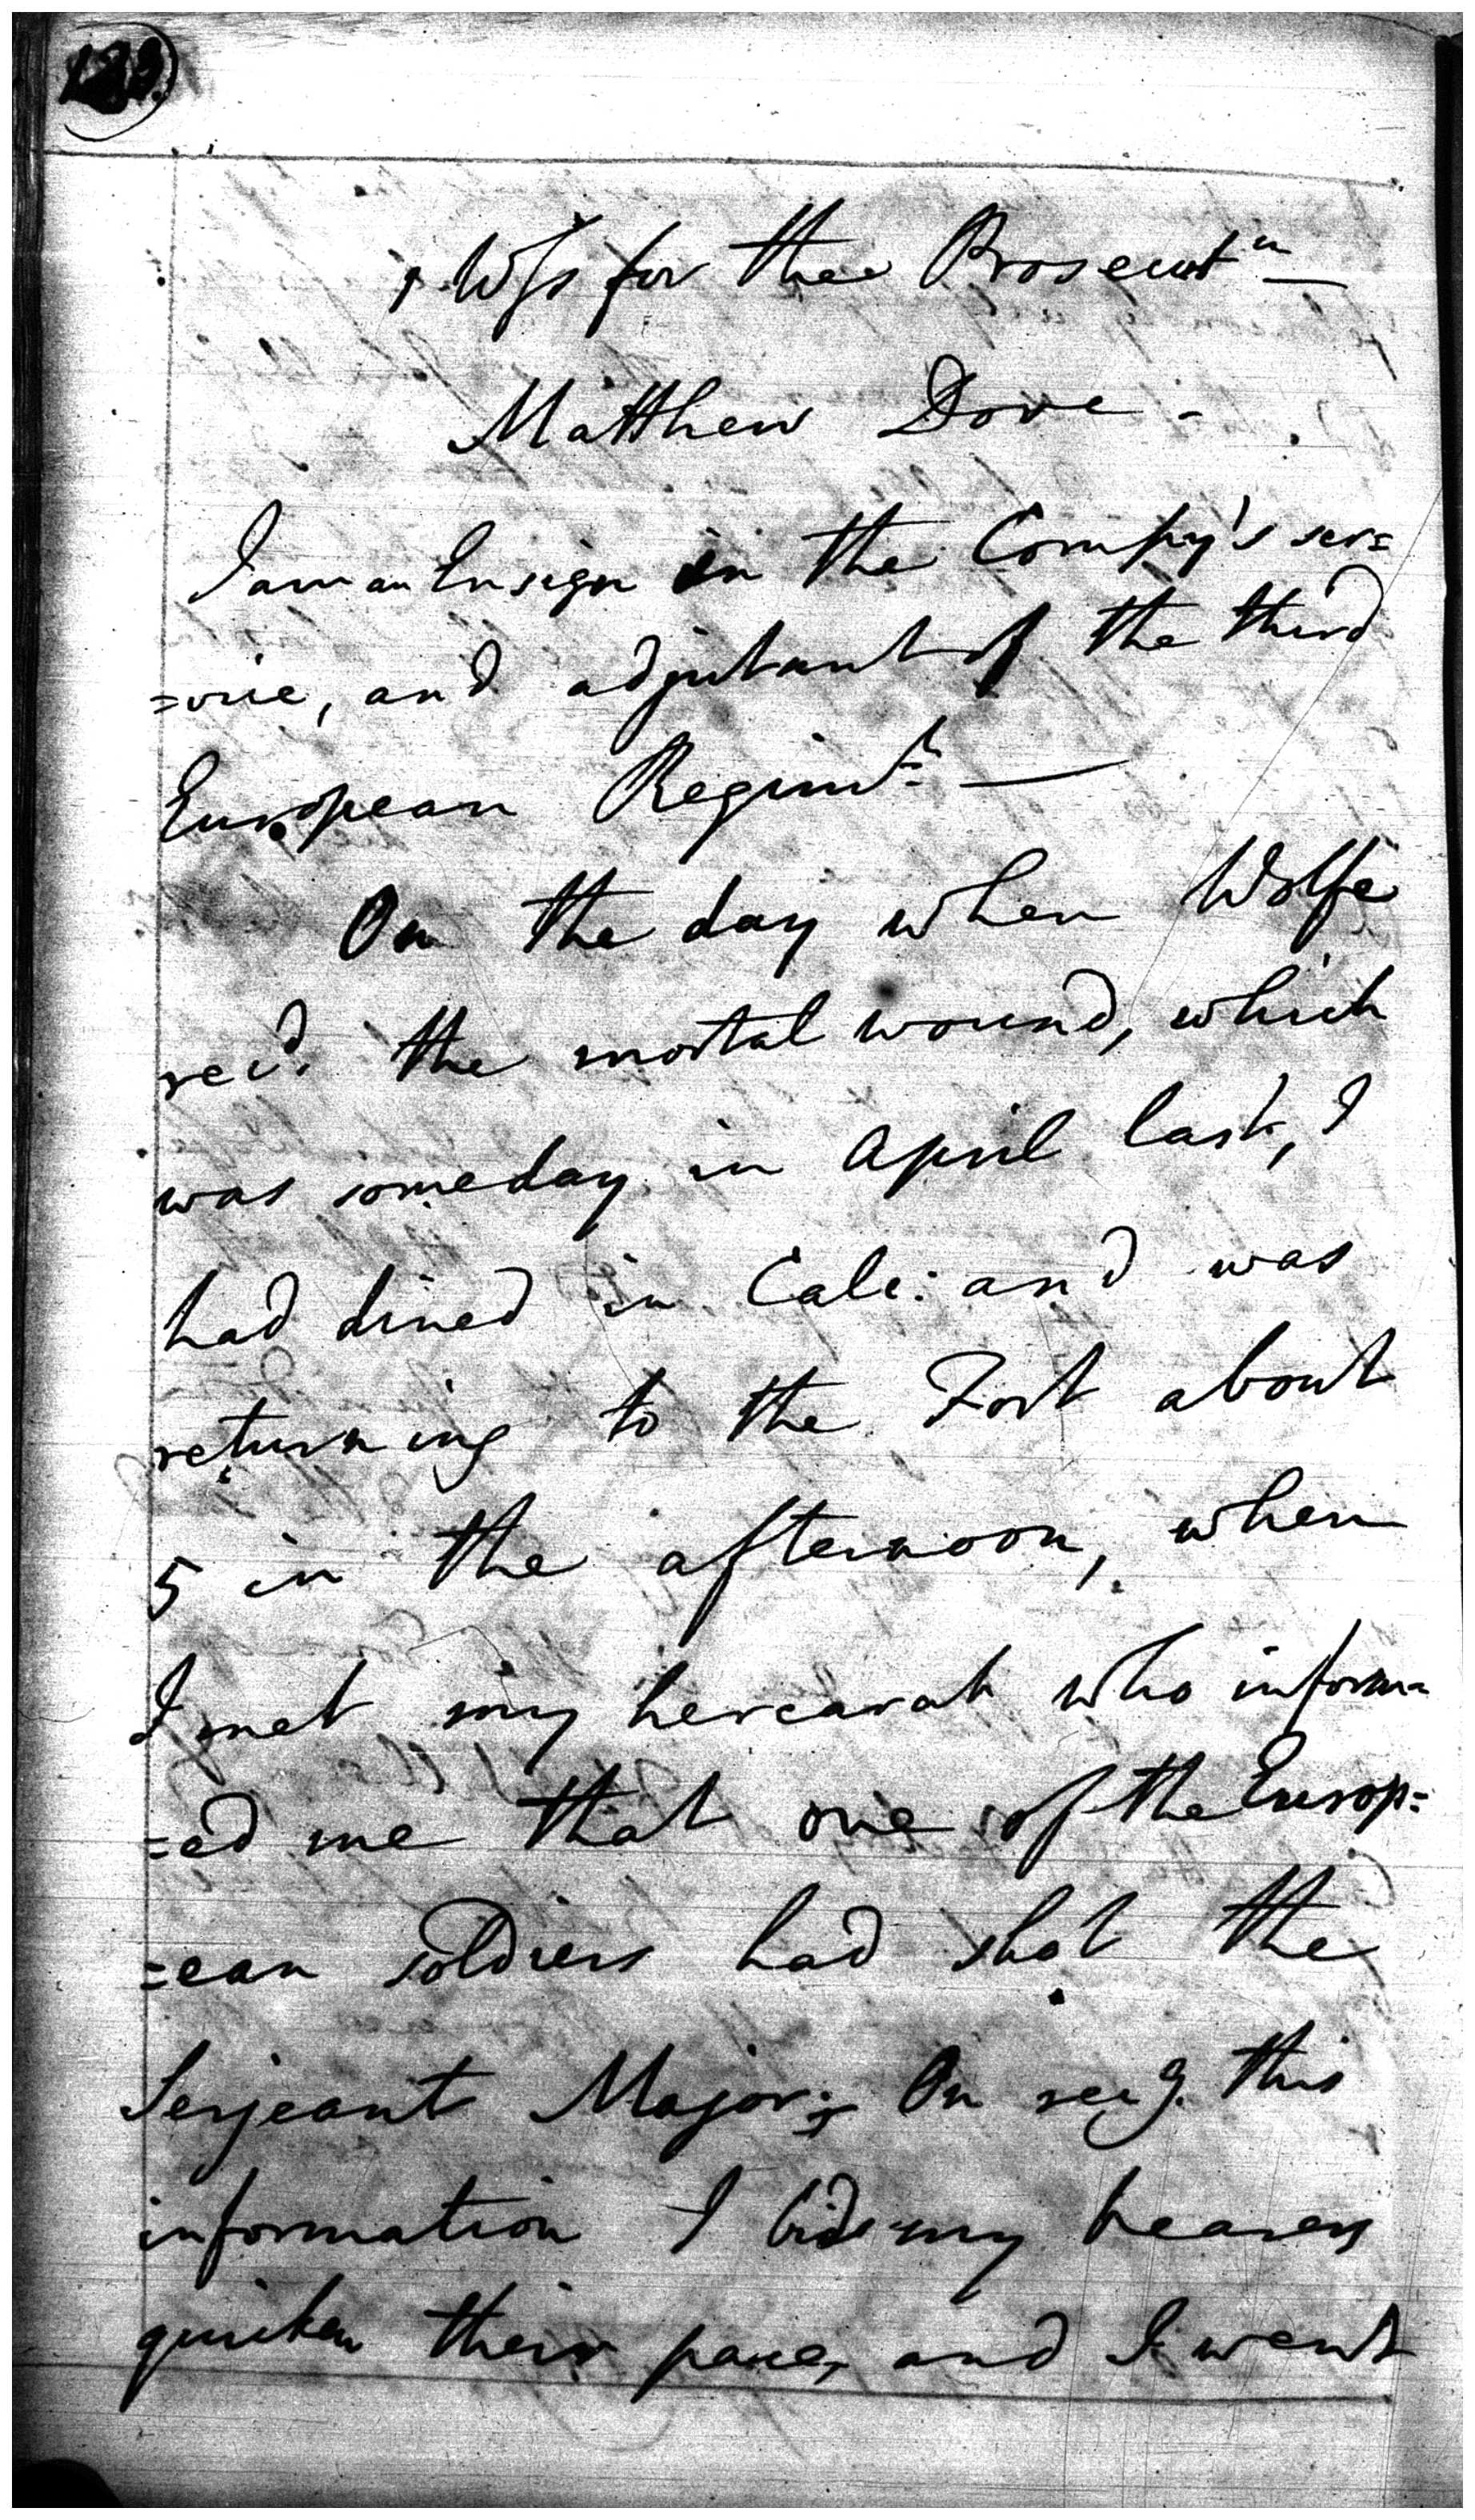 1 Wss for the Prosecutn —
Matthew Dove -
I am an Ensign in the Compy's ser=
=vice, and adjutant of the third
European Regimt. —
On the day when Wolfe
recd. the mortal wound, which
was someday in April last, I
had dined in Calc: and was
returning to the Fort about
5 in the afternoon, when
I met my hercarah who inform=
=ed me that one of the Europ=
=ean soldiers had shot the
Serjeant Major; On recg. this
information I bid my bearers
quicken their pace, and I went